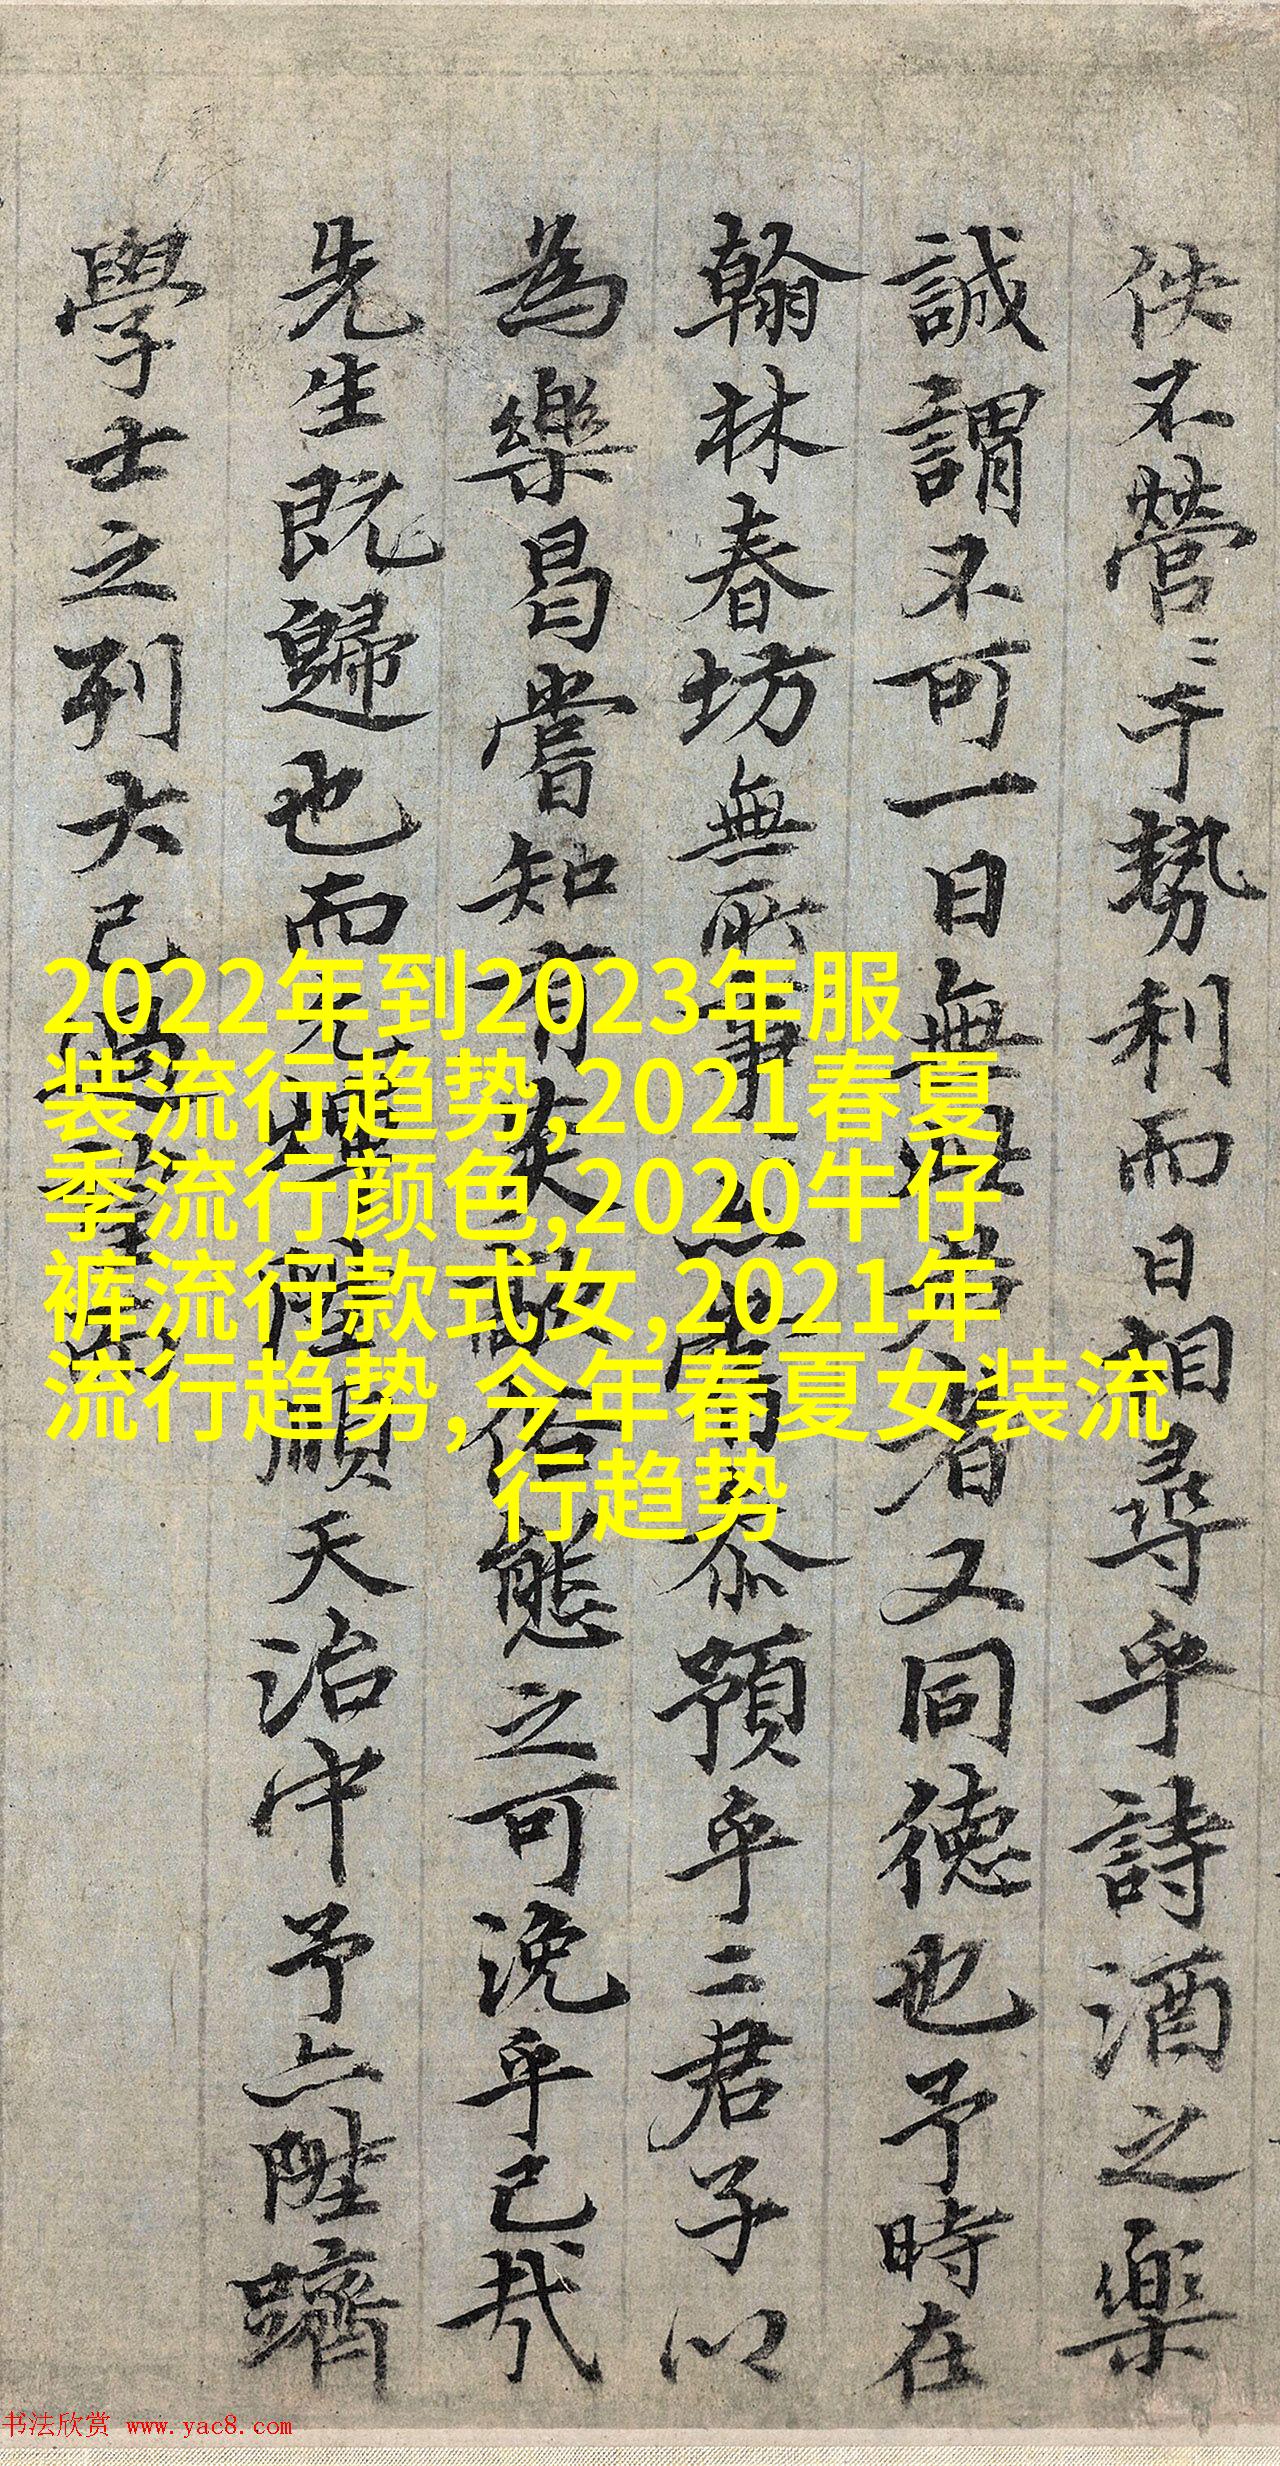 佚不營〻于勢利而日相尋乎詩酒之樂
誠謂不可一日無此君者又同德也予時在
翰林春坊無所事〻屬叅預乎二君子以
為樂曷嘗知有矣俗態之可浼乎已哉
先生既歸也而順天治中予亦陞躋
學士之列六七
2022年到2023年服
装流行趋势,2021春夏
季流行颜色,2020牛仔
裤流行款式女,2021年
流行趋势,今年春夏女装流
行趋势
书法欣赏 www.yac8.com